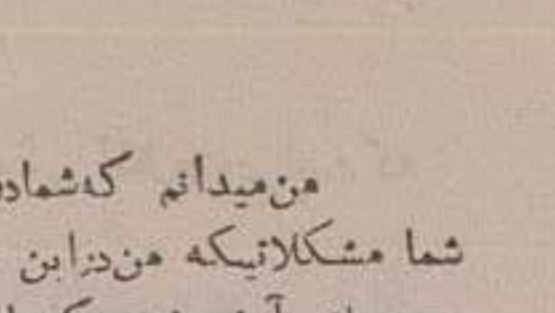 من میدانم که شما در
شما مشکلاتیکه من در این